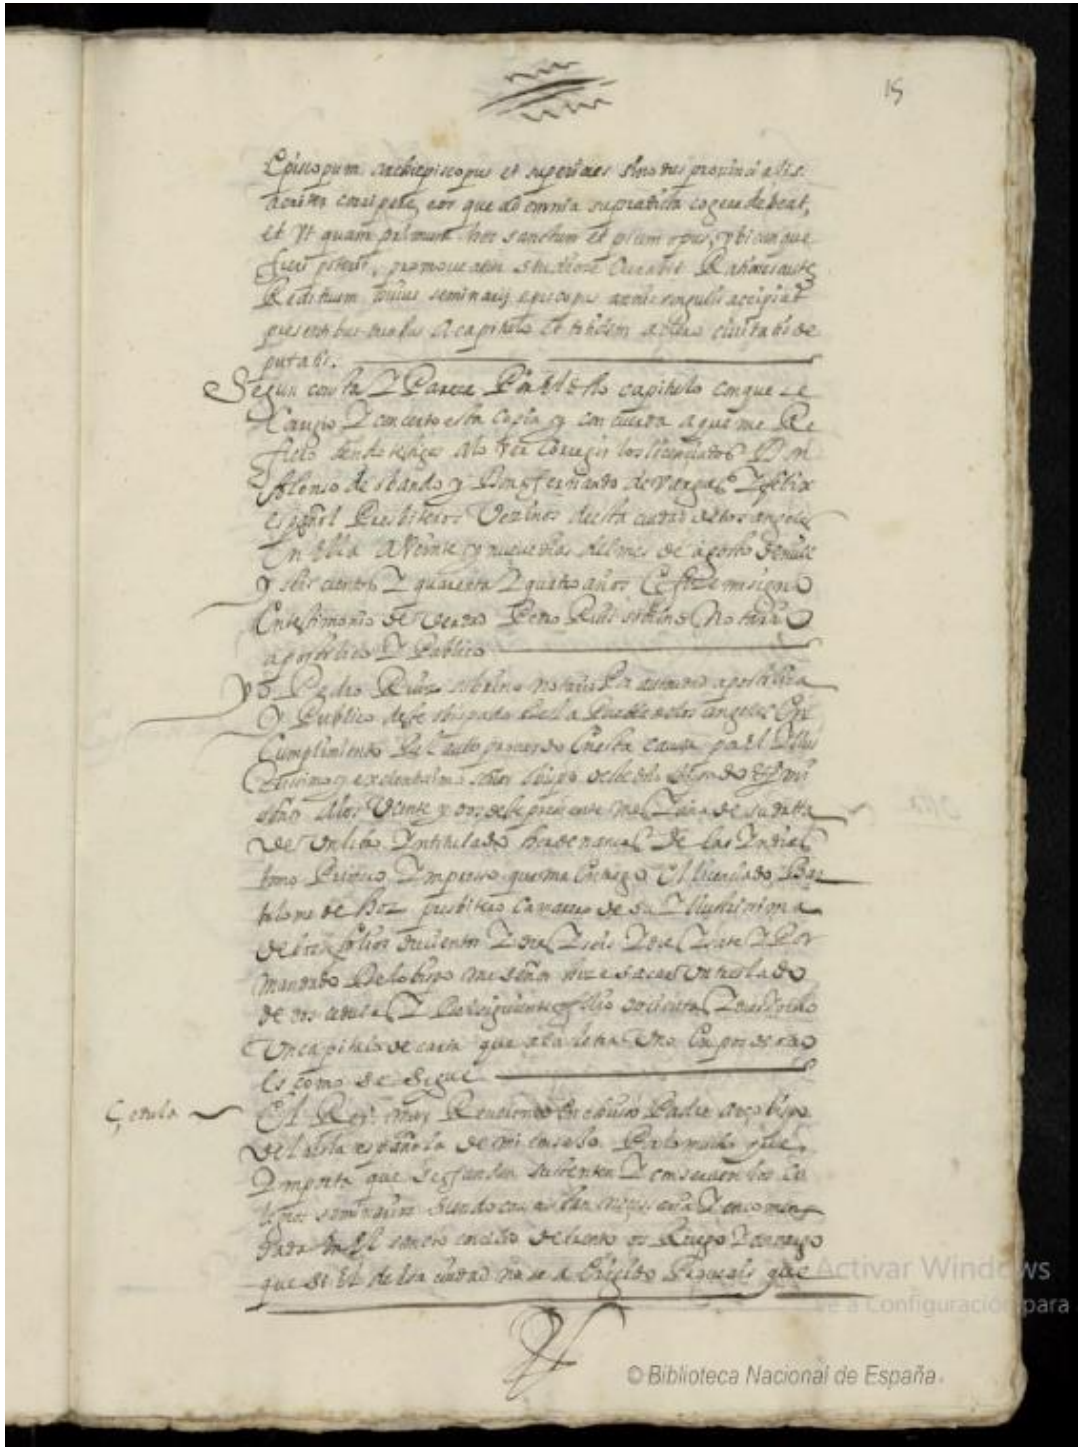 15
Episcopum Archiepiscopus et superiores sinodus provincialis
acriter corripere, eos que ad omnia supradicta cogere debeat,
et Vt quam primum hoc sanctum et pium opus, vbicunque
fieri poterit, promoueatur studiose curabit Rationes autē
Redituum huius seminarij episcopus annis singulis accipiat
presentibus duobus a capitulo et totidem a clero ciuitatis de
putatis.
Segun consta Y Parece Por el dho capitulo con que se
Corrigio Y concerto esta copia y concuerda a que me Re
fiero siendo testigos a lo Ver Corregir los licenciados Don
Alonso de obando y Don fernando de Vargas Y felix
español Presbiteros Vezinos de esta ciudad de los angeles
En Ella a Veinte y nueue dias del mes de agosto de mill
y seis cientos Y quarenta Y quatro años E fize mi signo
En testimonio de Verdad Pedro Ruis sobrino Notario
apostolico Y Publico
yo Pedro Ruiz sobrino notario Por autoridad apostolica
y Publico deste obispado de la Puebla de los angeles En
Cumplimiento del auto proueido En esta causa por el Illus
trissimo y excelentisimo señor obispo deste dho obispado mi
señor a los Veinte y dos deste presente mes Y año de su data
de Vn libro Yntitulado hordenanças De las Yndias
tomo Primero Ympresso que me Entrego El licenciado Bar
tolome de Hoz presbitero Camarero de su Yllustrisima
de entre folios ducientos Y dies Y seis Y dies Y siete Y Por
mandado Del obispo mi señor hize sacar Vn treslado
de dos cedulas Y Por el siguiente folio docientos Y dies Y ocho
Vn capitulo de carta que a la letra Vno En pos de otro
es como se sigue
Cedula El Rey muy Reuerendo En christo Padre arçobispo
De la isla española de mi consejo Por lo mucho que
Ymporta que se fundan sustenten Y conseruen los co
legios seminarios siendo cosa tan necessaria Y encomen
dada En El sancto concilio de trento os Ruego Y encargo
que si El de esa ciudad no se a Erigido Procureis que
Activar Windows
Ve a Configuración para
© Biblioteca Nacional de España